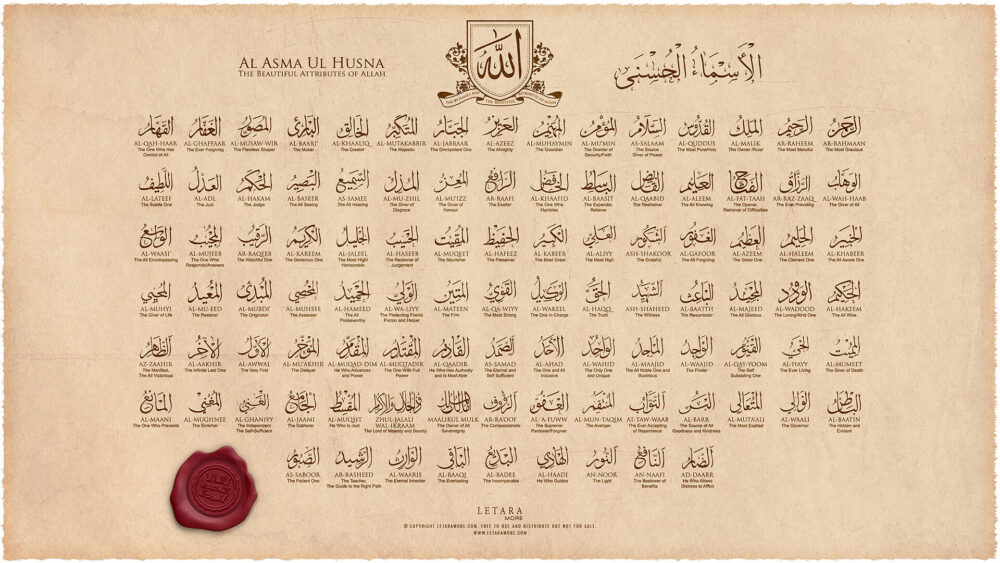 AL ASMA UL HUSNA
THE BEAUTIFUL ATTRIBUTES OF ALLAH
الله
الأسماء الحسنى
الرحمن
AR-RAHMAAN
The Most Gracious
الرحيم
AR-RAHEEM
The Most Merciful
الملك
AL-MALIK
The Owner /Ruler
القدوس
AL-QUDDUS
The Most Pure/Holy
السلام
AS-SALAAM
The Source
Giver of Peace
المؤمن
AL-MU'MIN
The Granter of
Security/Faith
المهيمن
AL-MUHAYMIN
The Guardian
العزيز
AL-AZEEZ
The Almighty
الجبار
AL-JABBAAR
The Omnipotent One
المتكبر
AL-MUTAKABBIR
The Majestic
الخالق
AL-KHAALIQ
The Creator
البارئ
AL-BAARI'
The Maker
المصور
AL-MUSAW-WIR
The Flawless Shaper
الغفار
AL-GHAFFAAR
The Ever Forgiving
القهار
AL-QAH-HAAR
The One Who Has
Control of All
الوهاب
AL-WAH-HAAB
The Giver of All
الرزاق
AR-RAZ-ZAAQ
The Ever Providing
الفتاح
AL-FAT-TAAH
The Opener,
Remover of Difficulties
العليم
AL-ALEEM
The All Knowing
القابض
AL-QAABID
The Restrainer
الباسط
AL-BAASIT
The Expander,
Reliever
الخافض
AL-KHAAFID
The One Who
Humbles
الرافع
AR-RAAFI
The Exalter
المعز
AL-MU'IZZ
The Giver of
Honour
المذل
AL-MU-ZHIL
The Giver of
Disgrace
السميع
AS-SAMEE
The All Hearing
البصير
AL-BASEER
The All Seeing
الحكم
AL-HAKAM
The Judge
العدل
AL-ADL
The Just
اللطيف
AL-LATEEF
The Subtle One
الخبير
AL-KHABEER
The All Aware One
الحليم
AL-HALEEM
The Clement One
العظيم
AL-AZEEM
The Great One
الغفور
AL-GAFOOR
The All Forgiving
الشكور
ASH-SHAKOOR
The Grateful
العلي
AL-ALIYY
The Most High
الكبير
AL-KABEER
The Most Great
الحفيظ
AL-HAFEEZ
The Preserver
المقيت
AL-MUQEET
The Nourisher
الحسيب
AL-HASEEB
The Reckoner of
Judgement
الجليل
AL-JALEEL
The Most High/
Honourable
الكريم
AL-KAREEM
The Generous One
الرقيب
AR-RAQEEB
The Watchful One
المجيب
AL-MUJEEB
The One Who
Responds/Answers
الواسع
AL-WAASI'
The All Encompassing
الحكيم
AL-HAKEEM
The All Wise
الودود
AL-WADOOD
The Loving/Kind One
المجيد
AL-MAJEED
The All Glorious
الباعث
AL-BAA'ITH
The Resurrector
الشهيد
ASH-SHAHEED
The Witness
الحق
AL-HAQQ
The Truth
الوكيل
AL-WAKEEL
The One In Charge
القوي
AL-QA-WIYY
The Most Strong
المتين
AL-MATEEN
The Firm
الولي
AL-WA-LIYY
The Protecting Friend,
Patron and Helper
الحميد
AL-HAMEED
The All
Praiseworthy
المحصي
AL-MUHSEE
The Assessor
المبدئ
AL-MUBDI'
The Originator
المعيد
AL-MU-EED
The Restorer
المحيي
AL-MUHYI
The Giver of Life
المميت
AL-MUMEET
The Giver of Death
الحي
AL-HAYY
The Ever Living
القيوم
AL-QAY-YOOM
The Self
Subsisting One
الواجد
AL-WAAJID
The Finder
الماجد
AL-MAAJID
The All Noble One and
Illustrious
الواحد
AL-WAHID
The Only One
and Unique
الأحد
AL-AHAD
The One and All
Inclusive
الصمد
AS-SAMAD
The Eternal and
Self Sufficient
القادر
AL-QAADIR
He Who Has Authority
and Is Most Able
المقتدر
AL-MUQTADIR
The One With Full
Power
المقدم
AL-MUQAD-DIM
He Who Advances
and Power
المؤخر
AL-MU'AKHIR
The Delayer
الأول
AL-AWWAL
The Very First
الآخر
AL-AAKHIR
The Infinite Last One
الظاهر
AZ-ZAAHIR
The Manifest,
The All Victorious
الباطن
AL-BAATIN
The Hidden and
Evident
الوالي
AL-WAALI
The Governer
المتعالي
AL-MUTA'ALI
The Most Exalted
البر
AL-BARR
The Source of All
Goodness and Kindness
التواب
AT-TAW-WAAB
The Ever Accepting
of Repentance
المنتقم
AL-MUN-TAQIM
The Avenger
العفو
AL-'A-FUWW
The Supreme
Pardoner/Forgiver
الرؤوف
AR-RAOOF
The Compassionate
مالك الملك
MAALIKUL MULK
The Owner of All
Sovereignty
ذو الجلال والإكرام
ZHUL-JALAL
WAL-IKRAAM
The Lord of Majesty and Bounty
المقسط
AL-MUQSIT
He Who Is Just
الجامع
AL-JAAMI
The Gatherer
الغني
AL-GHANIYY
The Independent
The Self-Sufficient
المغني
AL-MUGHNEE
The Enricher
المانع
AL-MAANI
The One Who Prevents
الضار
AD-DAARR
He Who Allows
Distress to Afflict
النافع
AN-NAAFI
The Bestower of
Benefits
النور
AN-NOOR
The Light
الهادي
AL-HAADI
He Who Guides
البديع
AL-BADEE
The Incomparable
الباقي
AL-BAAQI
The Everlasting
الوارث
AL-WAARIS
The Eternal Inheritor
الرشيد
AR-RASHEED
The Teacher,
The Guide to the Right Path
الصبور
AS-SABOOR
The Patient One
LETARA
MORE
© COPYRIGHT LETARAMORE.COM. FREE TO USE AND DISTRIBUTE BUT NOT FOR SALE.
WWW.LETARAMORE.COM